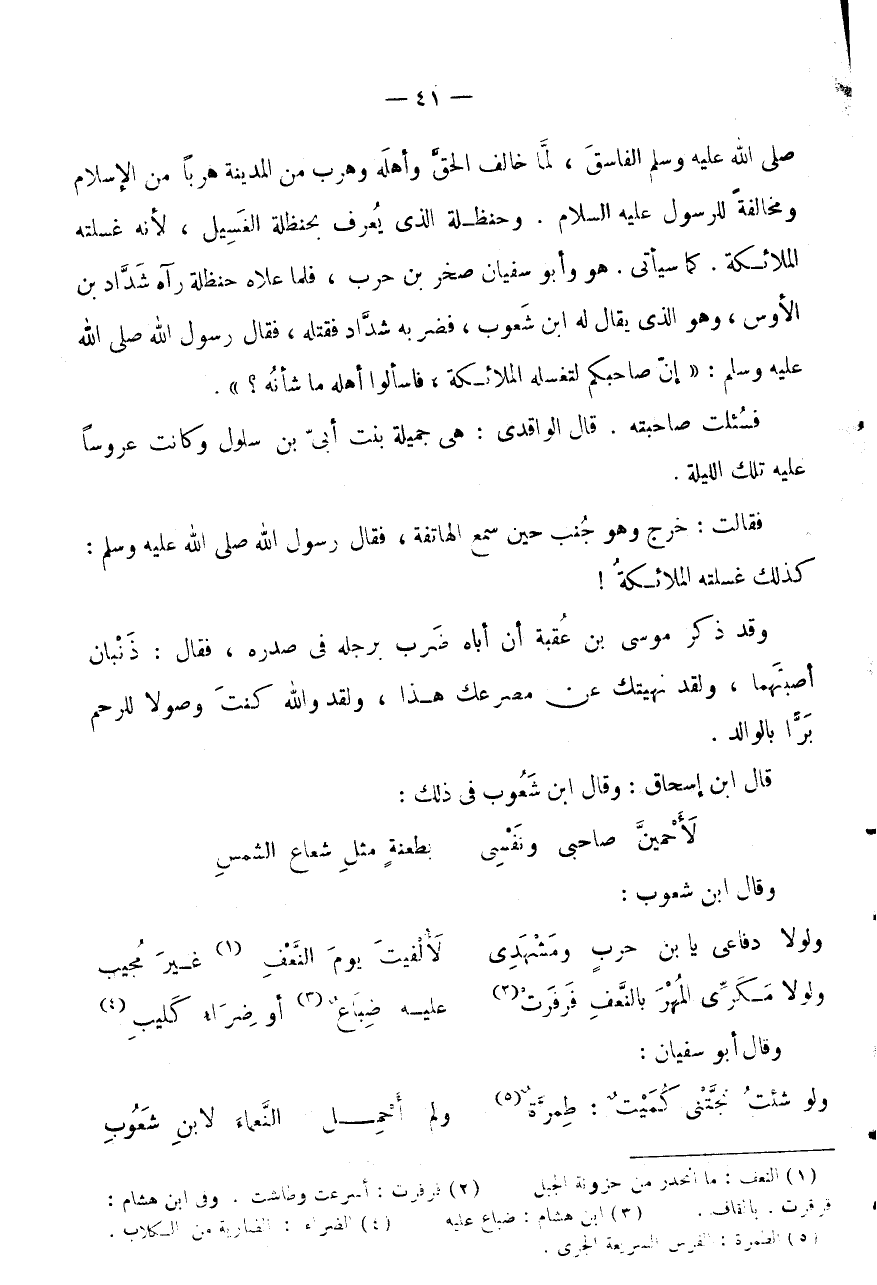 — ٤١ —
صلى الله عليه وسلم الفاسقَ ، لمَّا خالف الحقَّ وأهلَه وهرب من المدينة هرباً من الإسلام
ومخالفةً للرسول عليه السلام . وحنظلة الذى يُعرف بحنظلة الغَسِيل ، لأنه غسلته
الملائكة . كما سيأتى . هو وأبو سفيان صخر بن حرب ، فلما علاه حنظلة رآه شَدَّاد بن
الأوس ، وهو الذى يقال له ابن شَعوب ، فضربه شدَّاد فقتله ، فقال رسول الله صلى الله
عليه وسلم : « إنّ صاحبكم لتغسله الملائكة ، فاسألوا أهله ما شأنُه ؟ » .
فسُئلت صاحبته . قال الواقدى : هى جميلة بنت أبىّ بن سلول وكانت عروساً
عليه تلك الليلة .
فقالت : خرج وهو جُنب حين سمع الهاتفة ، فقال رسول الله صلى الله عليه وسلم :
كذلك غسلته الملائكةُ !
وقد ذكر موسى بن عُقبة أن أباه ضَرب برجله فى صدره ، فقال : ذَنْبان
أصبتَهما ، ولقد نهيتك عن مصرعك هذا ، ولقد والله كنتَ وصولا للرحم
بَرًّا بالوالد .
قال ابن إسحاق : وقال ابن شَعُوب فى ذلك :
لَأَحْمينَّ صاحبى ونَفْسِى بطعنةٍ مثلِ شعاع الشمسِ
وقال ابن شعوب :
ولولا دفاعى يا بن حربٍ ومَشْهَدِى لَأُلْفيتَ يومَ النَّعْفِ (١) غيرَ مُجيب
ولولا مَكَرِّى المُهْرَ بالنَّعفِ فَرفَرتْ (٢) عليه ضِبَاعٌ (٣) أو ضِرَاء كَليبِ (٤)
وقال أبو سفيان :
ولو شئتُ نجَّتْنى كُمَيْتٌ : طِمرَّةٌ (٥) ولم أَحْمِل النَّعماء لابنِ شَعُوبِ
(١) النعف : ما انحدر من حزونة الجبل (٢) فرفرت : أسرعت وطاشت . وفى ابن هشام :
قرقرت . بالقاف . (٣) ابن هشام : ضباع عليه (٤) الضراء : الضارية من الكلاب .
(٥) الطمرة : الفرس السريعة الجرى .